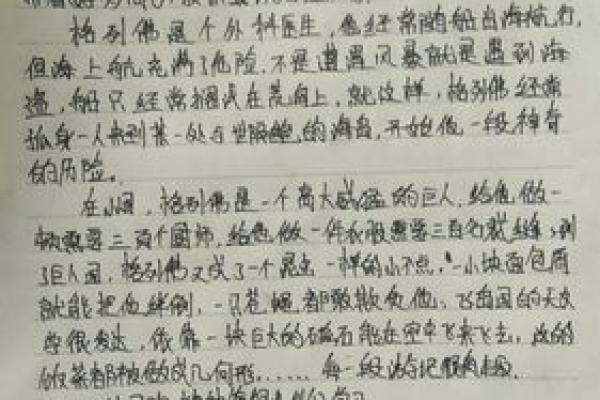 格列佛是个外科医生,他经常随船出海航行,
但海上航充满了危险.不是遭遇风暴就是遇到海
盗,船只经常搁浅在荒岛上,就这样,格列佛经常
孤身一人来到某一处与世隔绝的海岛,开始他一段神奇
的历险。
在小国,格列佛是一个高大威猛的巨人.给他做一
顿需要三百个厨师,给他做一件衣服需要三百名裁缝;到
了巨人国,格列佛又成了一个昆虫一样的小不点,一小块面包屑
就能把他绊倒,一只苍蝇都敢欺负他、飞岛国的天文
学很发达,依靠一块巨大的磁石能在空中飞来飞去,这的
饭菜都被做成几何形……每一段游记都